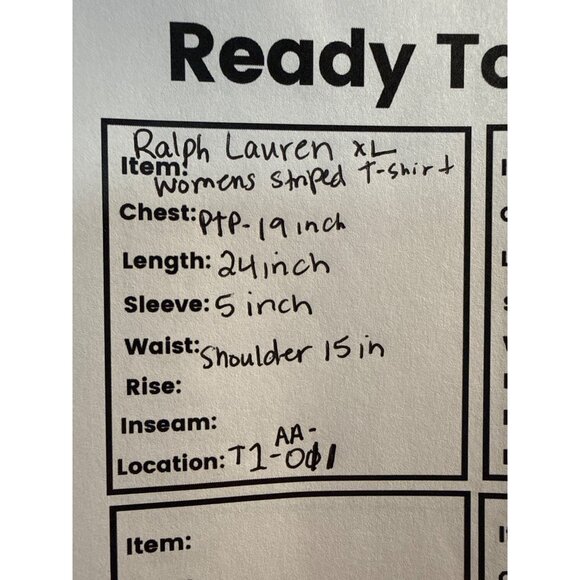 Ready To
Ralph Lauren XL
Item: Womens Striped T-shirt
Chest: PtP- 19 inch
Length: 24 inch
Sleeve: 5 inch
Waist: Shoulder 15 in
Rise:
Inseam:
AA-
Location: T1-001
Item: